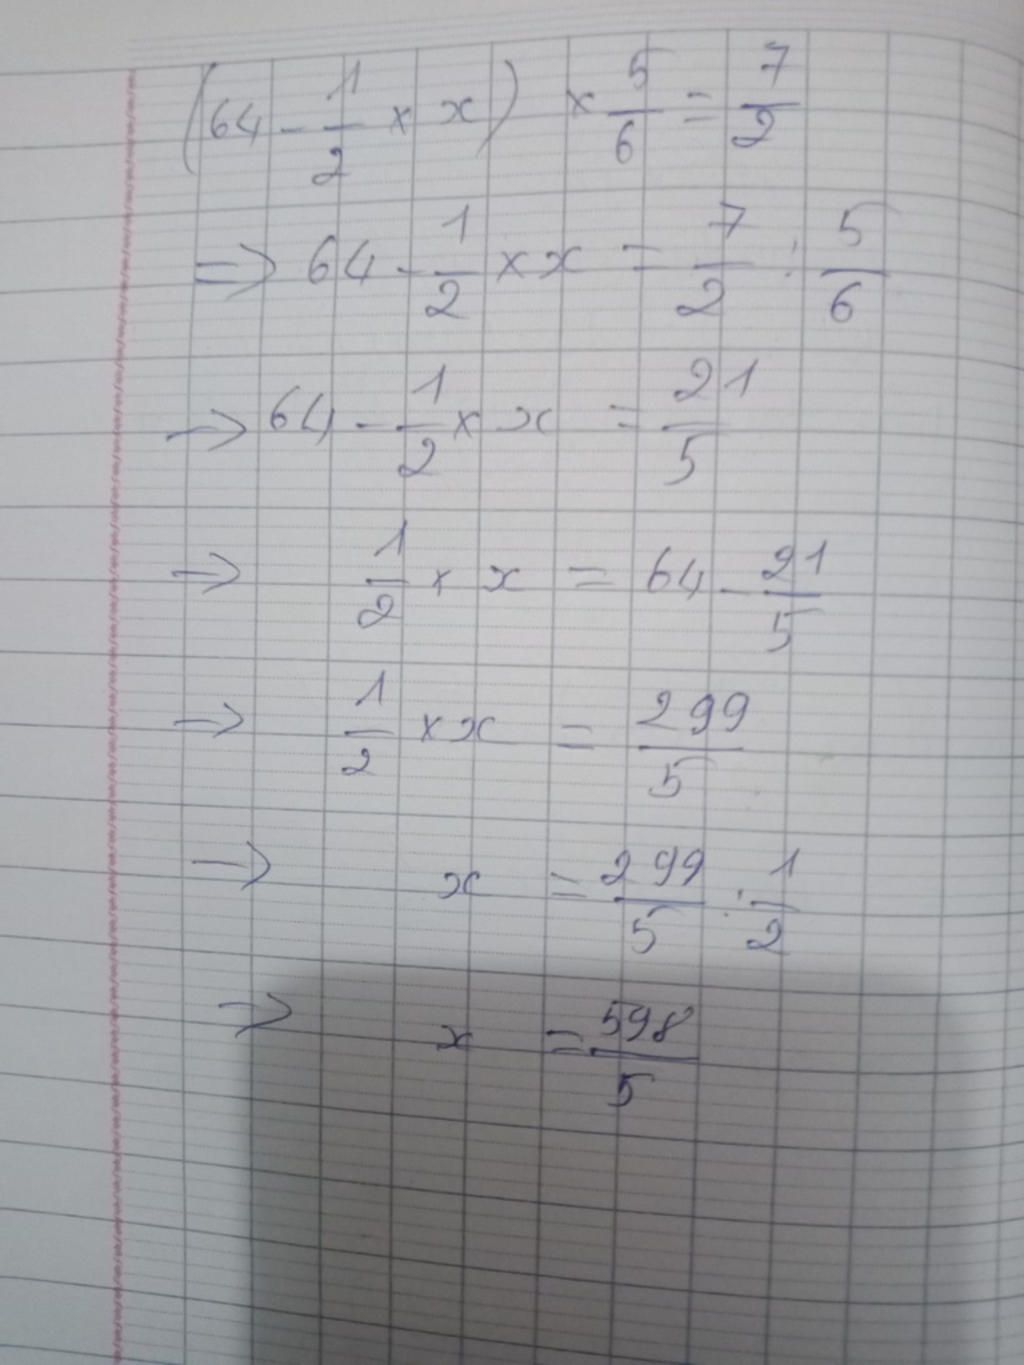 (64 - 1/2 × x) × 5/6 = 7/2
=> 64 - 1/2 × x = 7/2 : 5/6
→ 64 - 1/2 × x = 21/5
→ 1/2 × x = 64 - 21/5
→ 1/2 × x = 299/5
→ x = 299/5 : 1/2
→ x = 598/5